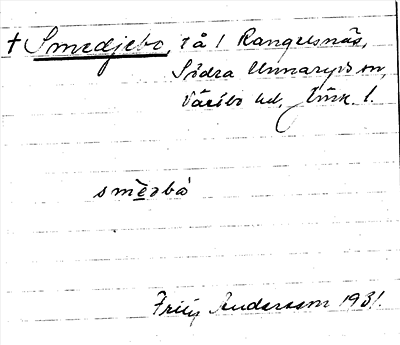 † Smedjebo, tå 1 Rangelsnäs,
Södra Unnaryds sn,
Västbo hd, Jönk. l.
smèdbò
Frity Andersson 1931.